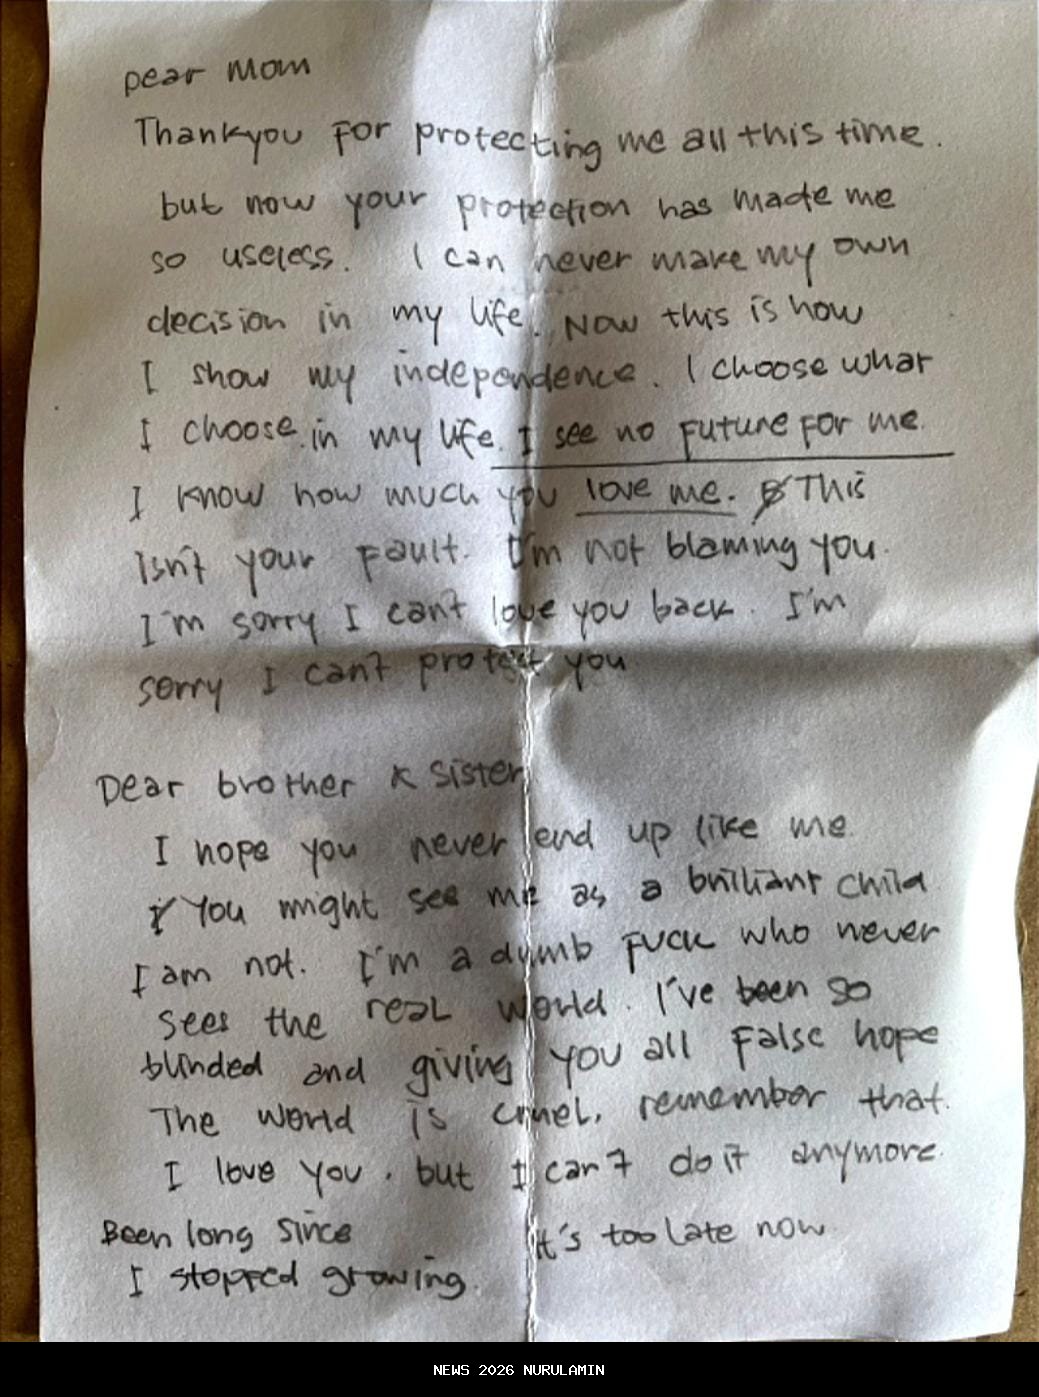 Dear Mom
Thankyou for protecting me all this time.
but now your protection has made me
so useless. I can never make my own
decision in my life. Now this is how
I show my independence. I choose what
I choose in my life. I see no future for me.
I know how much you love me. This
isn't your fault. I'm not blaming you.
I'm sorry I can't love you back. I'm
sorry I can't protect you
Dear brother & sister
I hope you never end up like me.
You might see me as a brilliant child
I am not. I'm a dumb fuck who never
sees the real world. I've been so
blinded and giving you all false hope
The world is cruel, remember that.
I love you, but I can't do it anymore.
Been long since
I stopped growing.
It's too late now
NEWS 2026 NURULAMIN